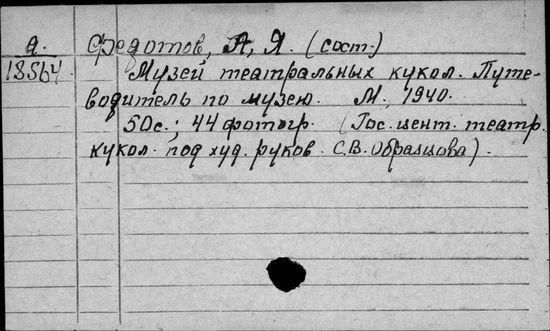 а. Федотов, А, Я. (сост.)
18564 Музей театральных кукол. Путе-
водитель по музею. М., 1940.
50с.; 44 фотогр. (Гос. цент. театр.
кукол. под худ. руков. С.В. Образцова).